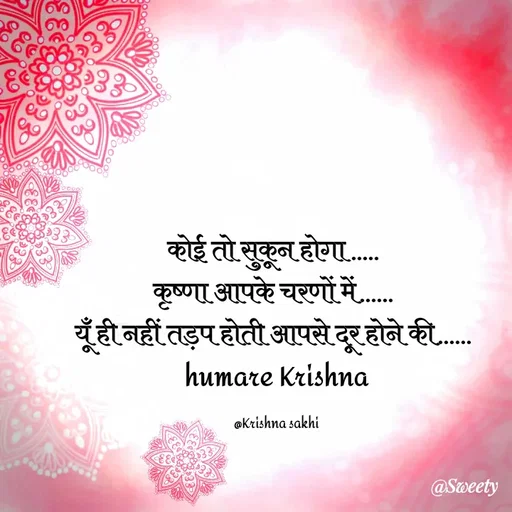 कोई तो सुकून होगा .....
कृष्णा आपके चरणों में......
यूँ ही नहीं तड़प होती आपसे दूर होने की......
humare Krishna
@Krishna sakhi
@Sweety